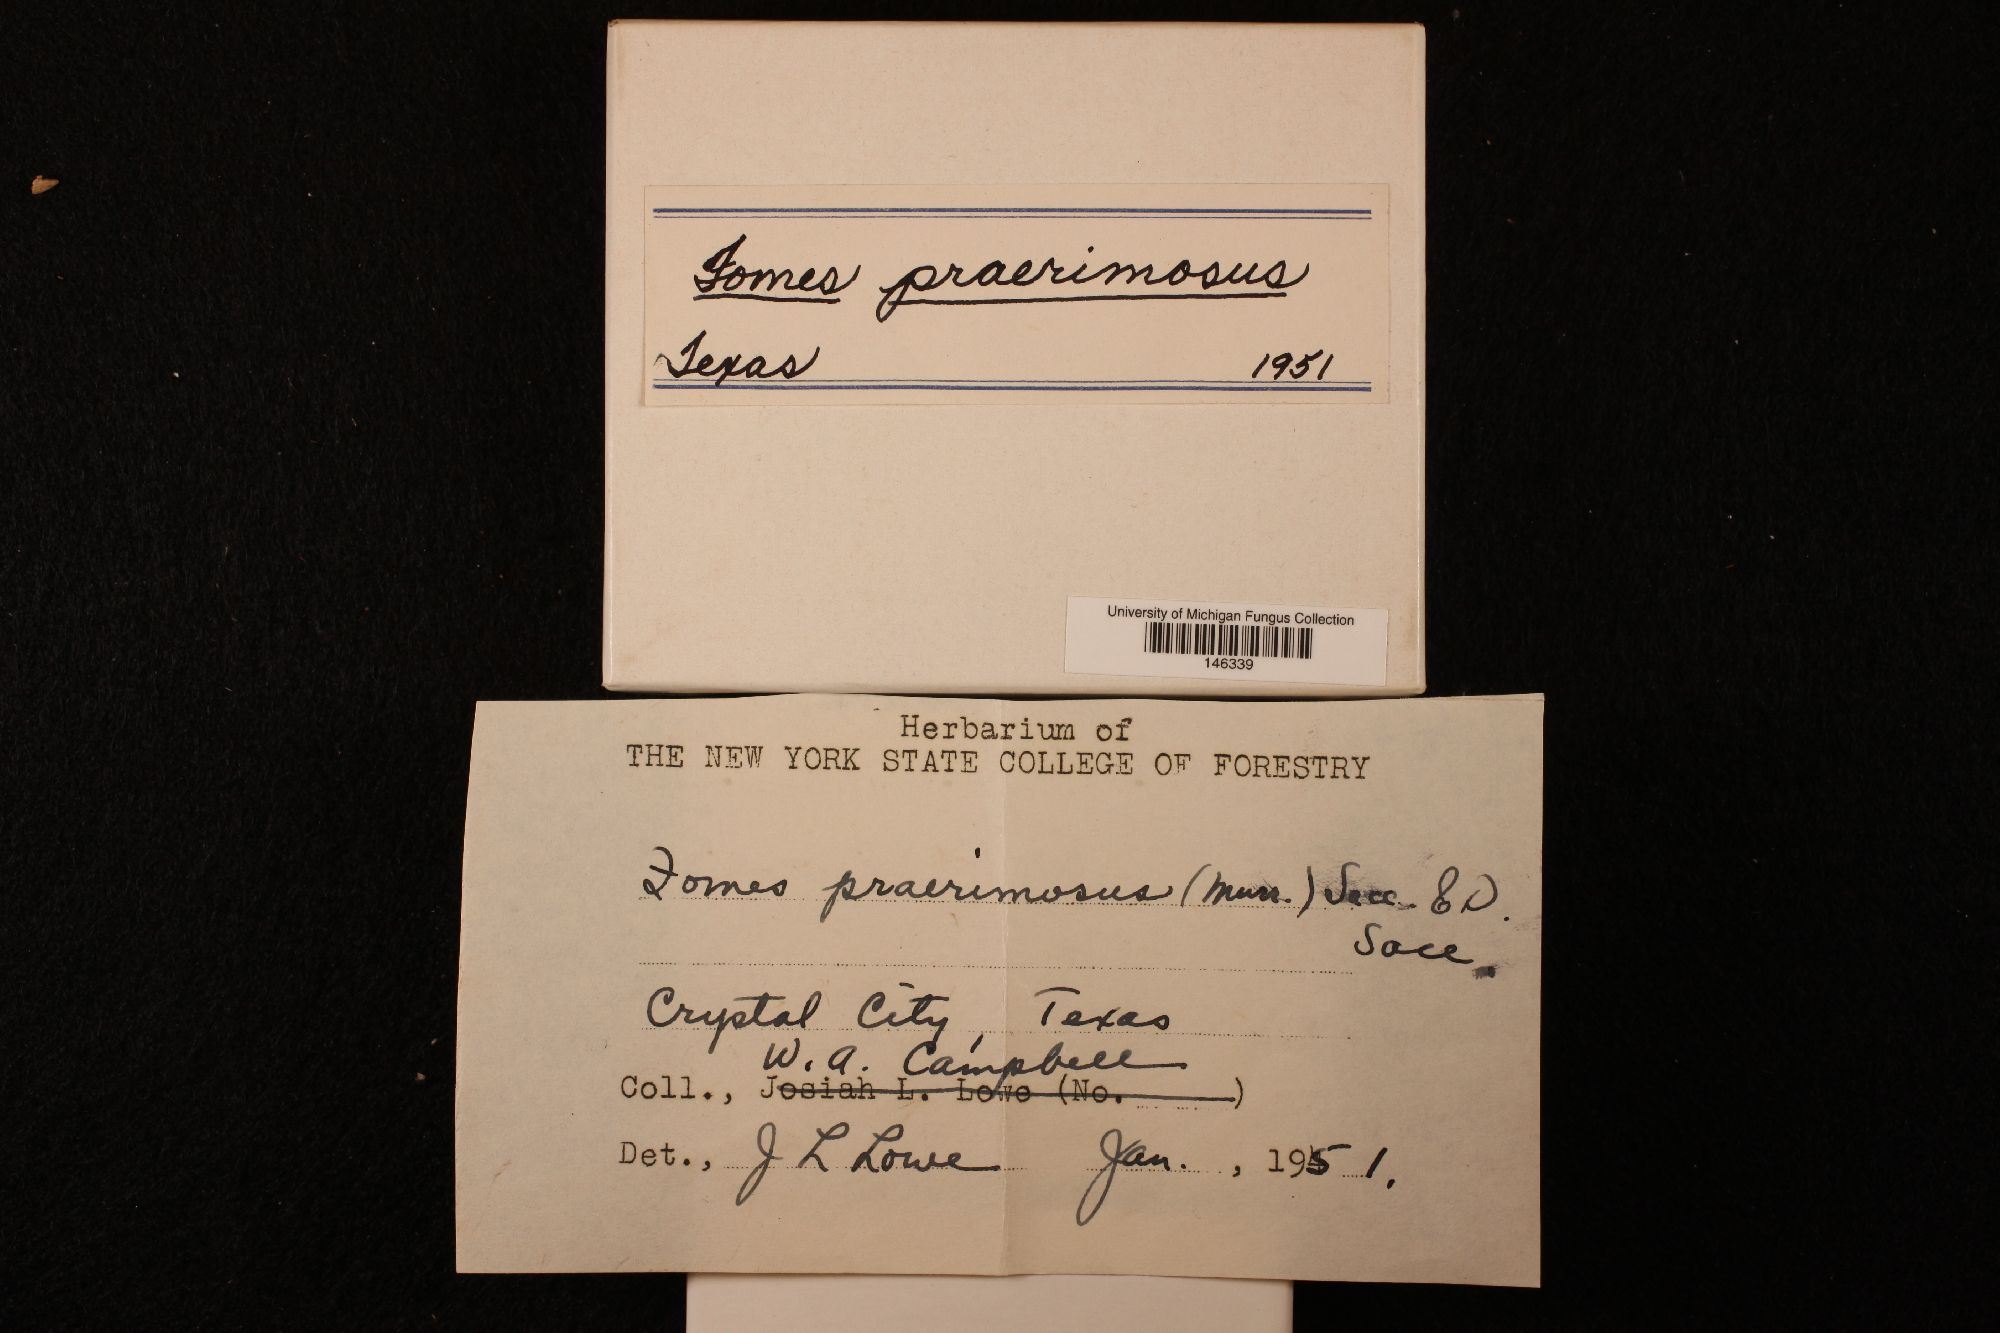 Fomes praerimosus
Texas 1951
University of Michigan Fungus Collection
146339
Herbarium of
THE NEW YORK STATE COLLEGE OF FORESTRY
Fomes praerimosus (Murr.) Sacc. & D.
Sacc.
Crystal City, Texas
W. A. Campbell
Coll., Josiah L. Lowe (No. )
Det., J L Lowe Jan. , 1951.